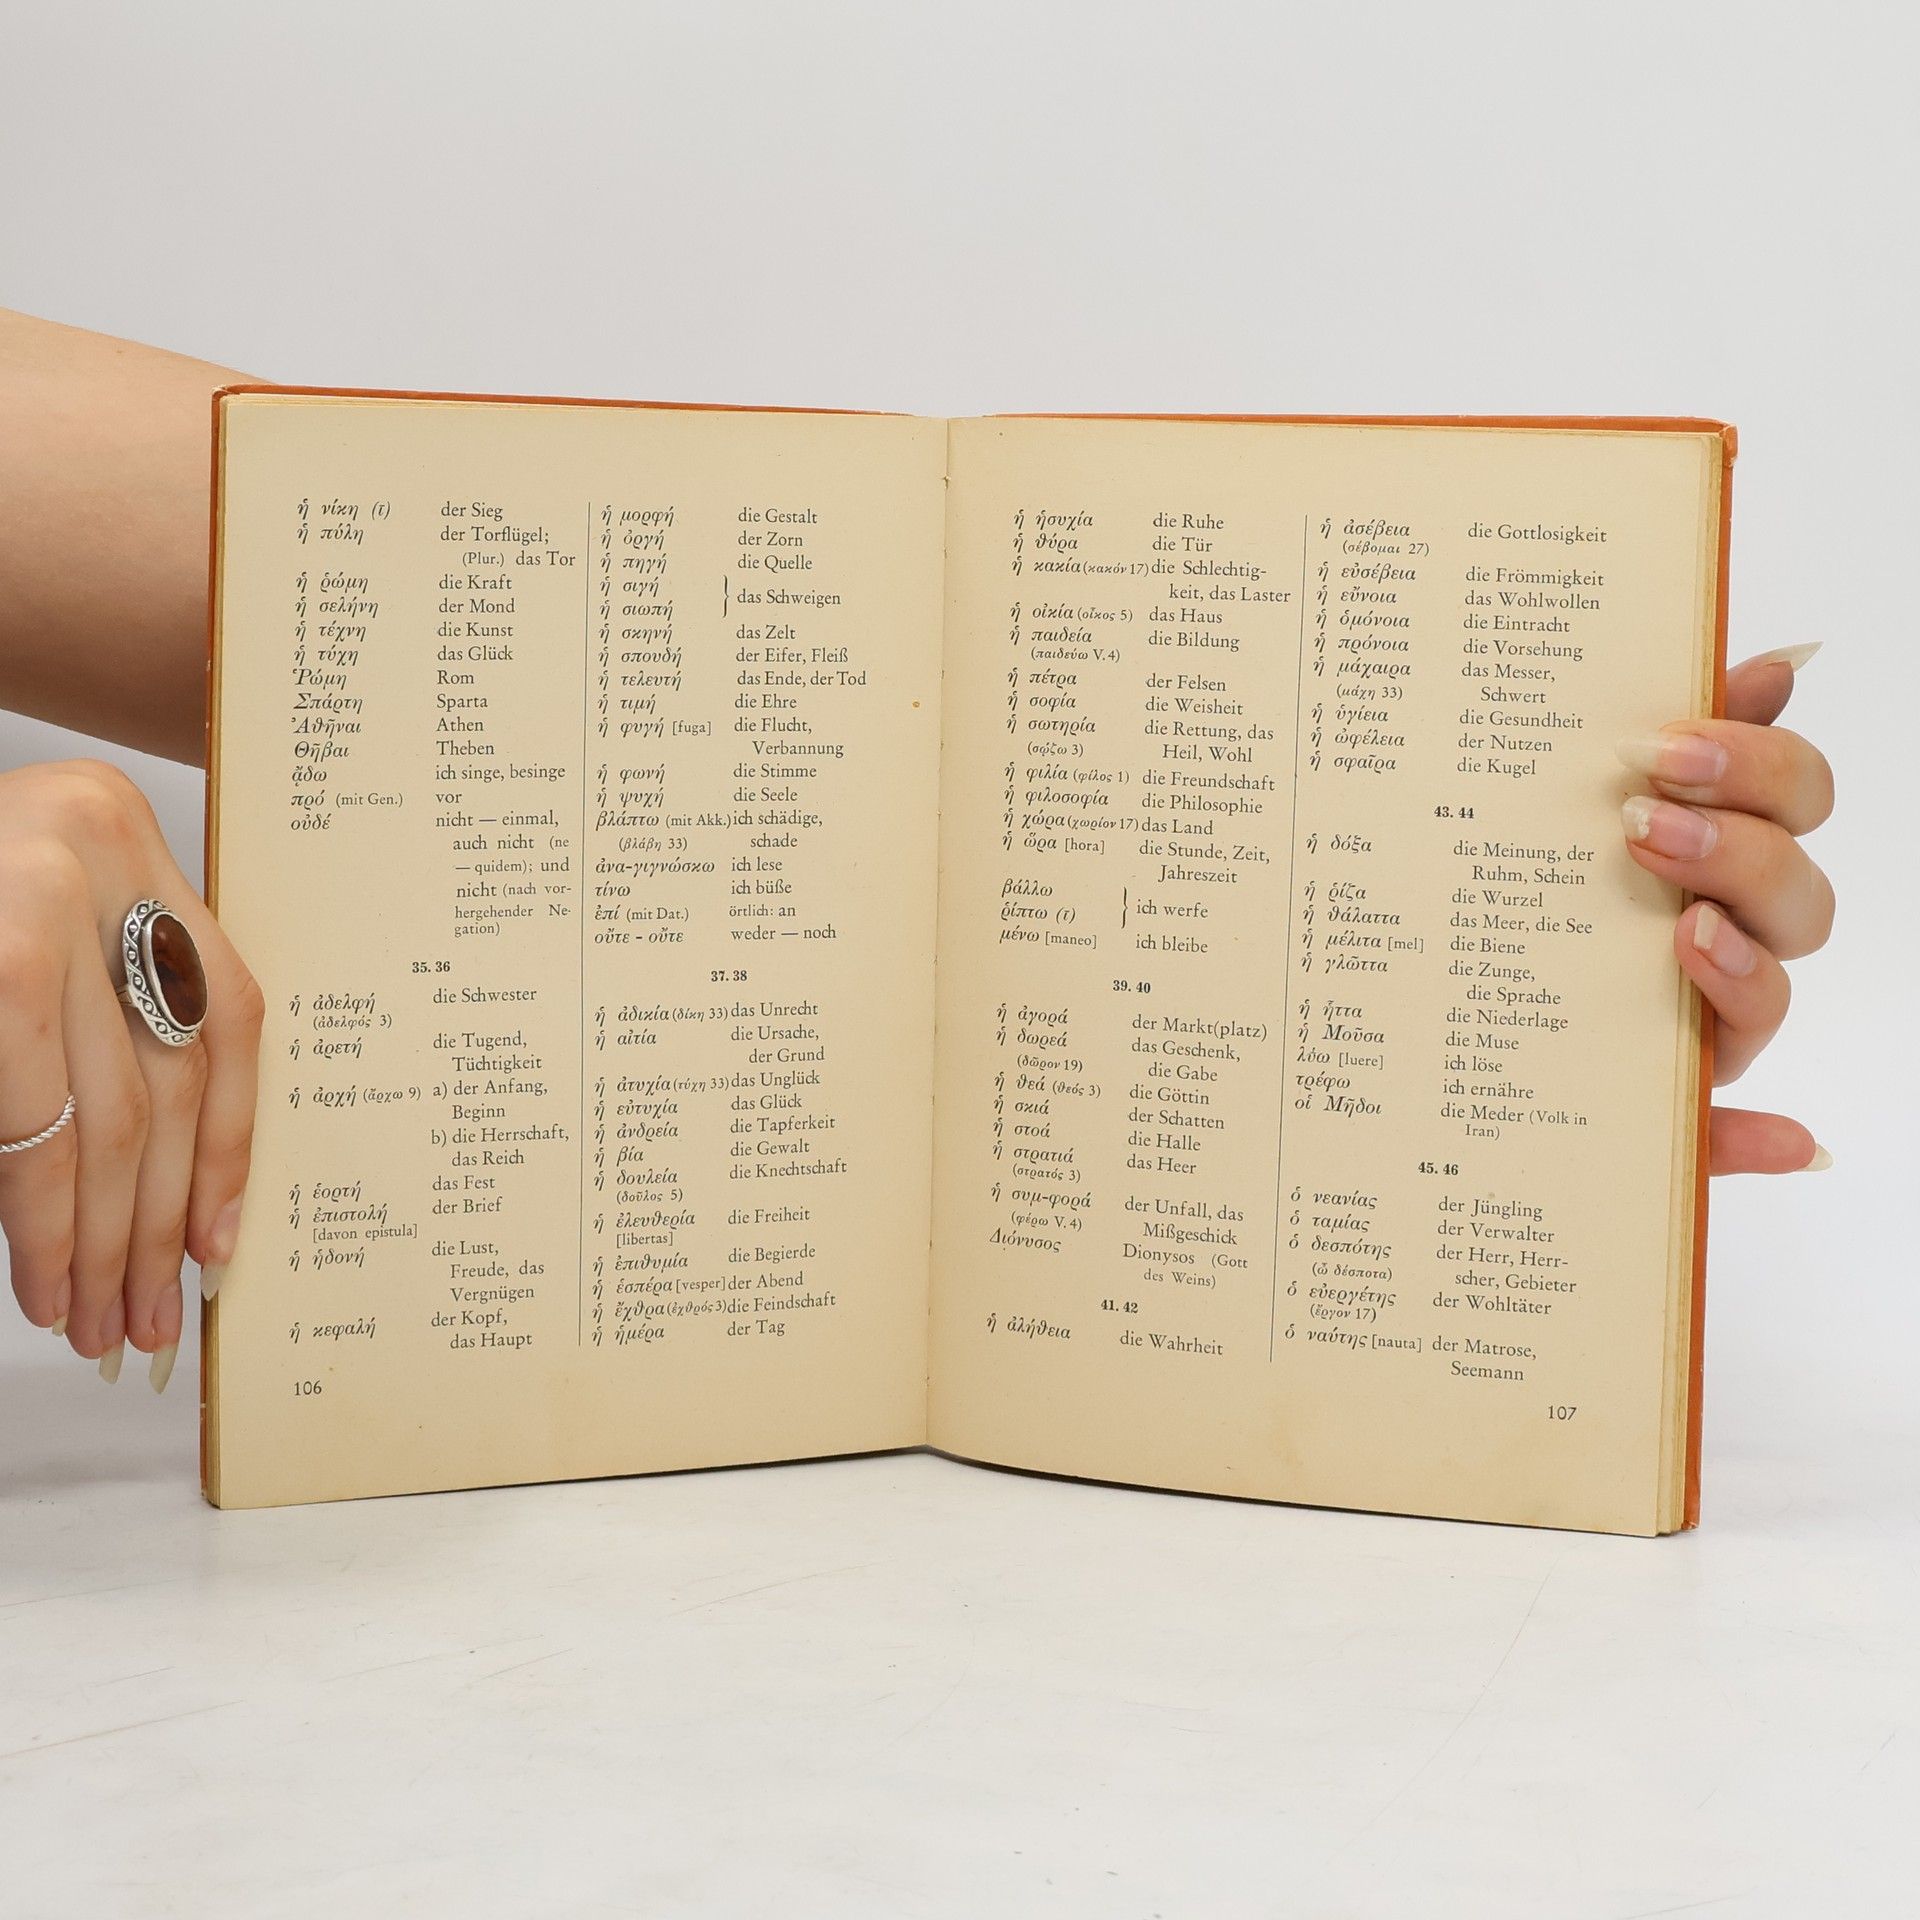 ἡ νίκη (ῑ) der Sieg
ἡ πύλη der Torflügel;
(Plur.) das Tor
ἡ ῥώμη die Kraft
ἡ σελήνη der Mond
ἡ τέχνη die Kunst
ἡ τύχη das Glück
Ῥώμη Rom
Σπάρτη Sparta
Ἀθῆναι Athen
Θῆβαι Theben
ᾄδω ich singe, besinge
πρό (mit Gen.) vor
οὐδέ nicht — einmal,
auch nicht (ne
— quidem); und
nicht (nach vor-
hergehender Ne-
gation)
35. 36
ἡ ἀδελφή die Schwester
(ἀδελφός 3)
ἡ ἀρετή die Tugend,
Tüchtigkeit
ἡ ἀρχή (ἄρχω 9) a) der Anfang,
Beginn
b) die Herrschaft,
das Reich
ἡ ἑορτή das Fest
ἡ ἐπιστολή der Brief
[davon epistula]
ἡ ἡδονή die Lust,
Freude, das
Vergnügen
ἡ κεφαλή der Kopf,
das Haupt
106
ἡ μορφή die Gestalt
ἡ ὀργή der Zorn
ἡ πηγή die Quelle
ἡ σιγή
ἡ σιωπή } das Schweigen
ἡ σκηνή das Zelt
ἡ σπουδή der Eifer, Fleiß
ἡ τελευτή das Ende, der Tod
ἡ τιμή die Ehre
ἡ φυγή [fuga] die Flucht,
Verbannung
ἡ φωνή die Stimme
ἡ ψυχή die Seele
βλάπτω (mit Akk.) ich schädige,
(βλάβη 33) schade
ἀνα-γιγνώσκω ich lese
τίνω ich büße
ἐπί (mit Dat.) örtlich: an
οὔτε - οὔτε weder — noch
37. 38
ἡ ἀδικία (δίκη 33) das Unrecht
ἡ αἰτία die Ursache,
der Grund
ἡ ἀτυχία (τύχη 33) das Unglück
ἡ εὐτυχία das Glück
ἡ ἀνδρεία die Tapferkeit
ἡ βία die Gewalt
ἡ δουλεία die Knechtschaft
(δοῦλος 5)
ἡ ἐλευθερία die Freiheit
[libertas]
ἡ ἐπιθυμία die Begierde
ἡ ἑσπέρα [vesper] der Abend
ἡ ἔχθρα (ἐχθρός 3) die Feindschaft
ἡ ἡμέρα der Tag
ἡ ἡσυχία die Ruhe
ἡ θύρα die Tür
ἡ κακία (κακόν 17) die Schlechtig-
keit, das Laster
ἡ οἰκία (οἶκος 5) das Haus
ἡ παιδεία die Bildung
(παιδεύω V. 4)
ἡ πέτρα der Felsen
ἡ σοφία die Weisheit
ἡ σωτηρία die Rettung, das
(σῴζω 3) Heil, Wohl
ἡ φιλία (φίλος 1) die Freundschaft
ἡ φιλοσοφία die Philosophie
ἡ χώρα (χωρίον 17) das Land
ἡ ὥρα [hora] die Stunde, Zeit,
Jahreszeit
βάλλω
ῥίπτω (ῑ) } ich werfe
μένω [maneo] ich bleibe
39. 40
ἡ ἀγορά der Markt(platz)
ἡ δωρεά das Geschenk,
(δῶρον 19) die Gabe
ἡ θεά (θεός 3) die Göttin
ἡ σκιά der Schatten
ἡ στοά die Halle
ἡ στρατιά das Heer
(στρατός 3)
ἡ συμ-φορά der Unfall, das
(φέρω V. 4) Mißgeschick
Διόνυσος Dionysos (Gott
des Weins)
41. 42
ἡ ἀλήθεια die Wahrheit
ἡ ἀσέβεια die Gottlosigkeit
(σέβομαι 27)
ἡ εὐσέβεια die Frömmigkeit
ἡ εὔνοια das Wohlwollen
ἡ ὁμόνοια die Eintracht
ἡ πρόνοια die Vorsehung
ἡ μάχαιρα das Messer,
(μάχη 33) Schwert
ἡ ὑγίεια die Gesundheit
ἡ ὠφέλεια der Nutzen
ἡ σφαῖρα die Kugel
43. 44
ἡ δόξα die Meinung, der
Ruhm, Schein
ἡ ῥίζα die Wurzel
ἡ θάλαττα das Meer, die See
ἡ μέλιτα [mel] die Biene
ἡ γλῶττα die Zunge,
die Sprache
ἡ ἧττα die Niederlage
ἡ Μοῦσα die Muse
λύω [luere] ich löse
τρέφω ich ernähre
οἱ Μῆδοι die Meder (Volk in
Iran)
45. 46
ὁ νεανίας der Jüngling
ὁ ταμίας der Verwalter
ὁ δεσπότης der Herr, Herr-
(ὦ δέσποτα) scher, Gebieter
ὁ εὐεργέτης der Wohltäter
(ἔργον 17)
ὁ ναύτης [nauta] der Matrose,
Seemann
107